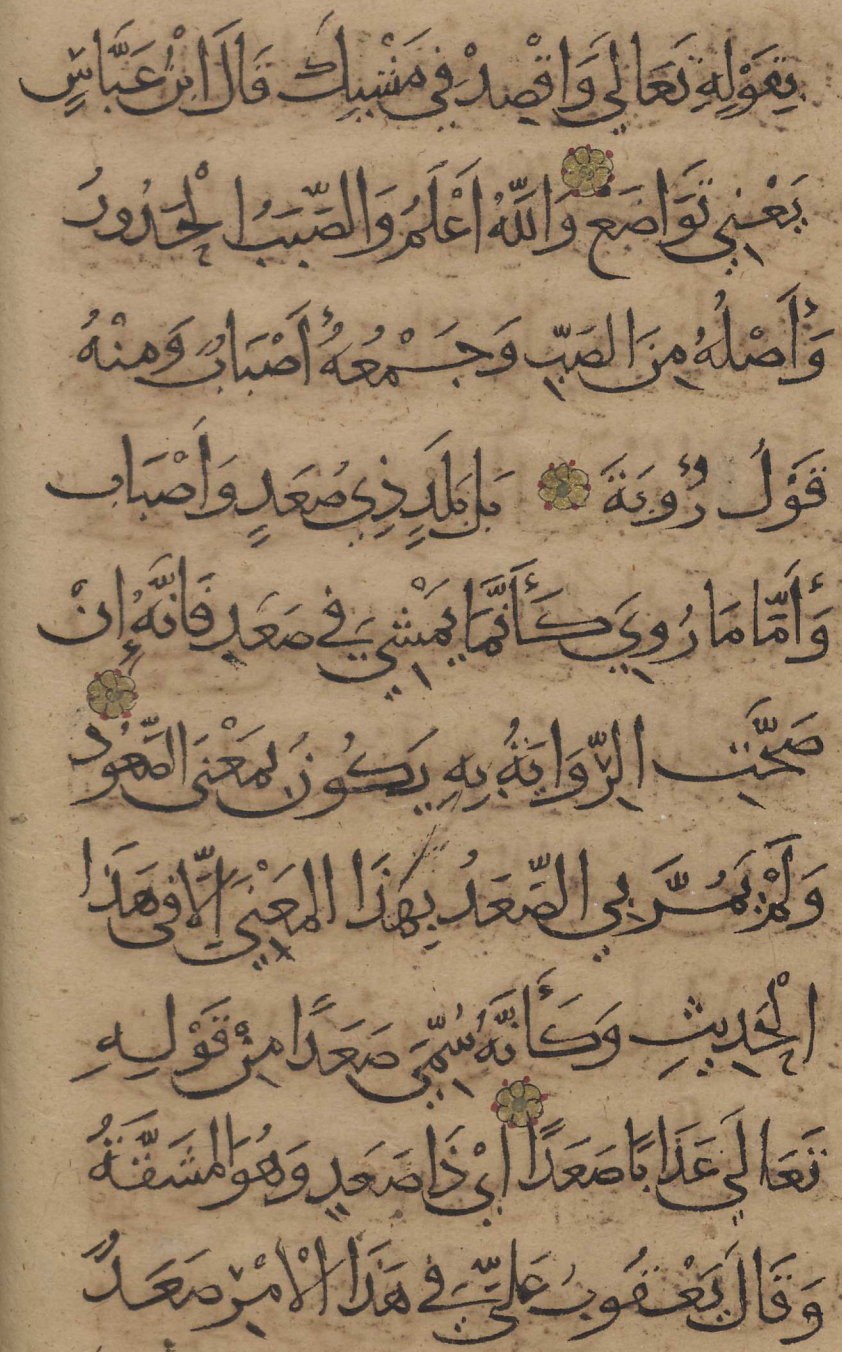 بِقَوْلِهِ تَعَالَي وَاقْصِدْ فِي مَشْيِكَ قَالَ ابْنُ عَبَّاسٍ
يَعْنِي تَوَاضَعْ وَاللّٰهُ اَعْلَمُ وَالصَّبَبُ الْحَدُورُ
وَأَصْلُهُ مِنَ الصَبِّ وَجَمْعُهُ أَصْبَابٌ وَمِنْهُ
قَوْلُ رُؤْبَةَ بَل بَلَدٍ ذِي صُعَدٍ وَاَصْبَاب
وَأَمَّا مَا رُوِيَ كَأَنَّمَا يَمْشِيَ فِي صَعَدٍ فَانَّهُ إِنْ
صَحَّتِ الرِّوَايَةُ بِهِ يَكُونُ بِمَعْنَى الصُّعُودِ
وَلَمْ يَمُرَّ بِي الصَّعَدُ بِهَذَا المَعْنَي اِلَّا فِي هَذَا
الْحَدِيثِ وَكَأَنَّهُ سُمِّيَ صَعَدًا مِنْ قَوْلِهِ
تَعَالَي عَذَابًا صَعَدًا اَيْ ذَا صَعَدٍ وَهُوَ المَشَقَّةُ
وَقَالَ يَعْقُوبُ عَلَيَّ فِي هَذَا الْاَمْرِ صَعَدٌ